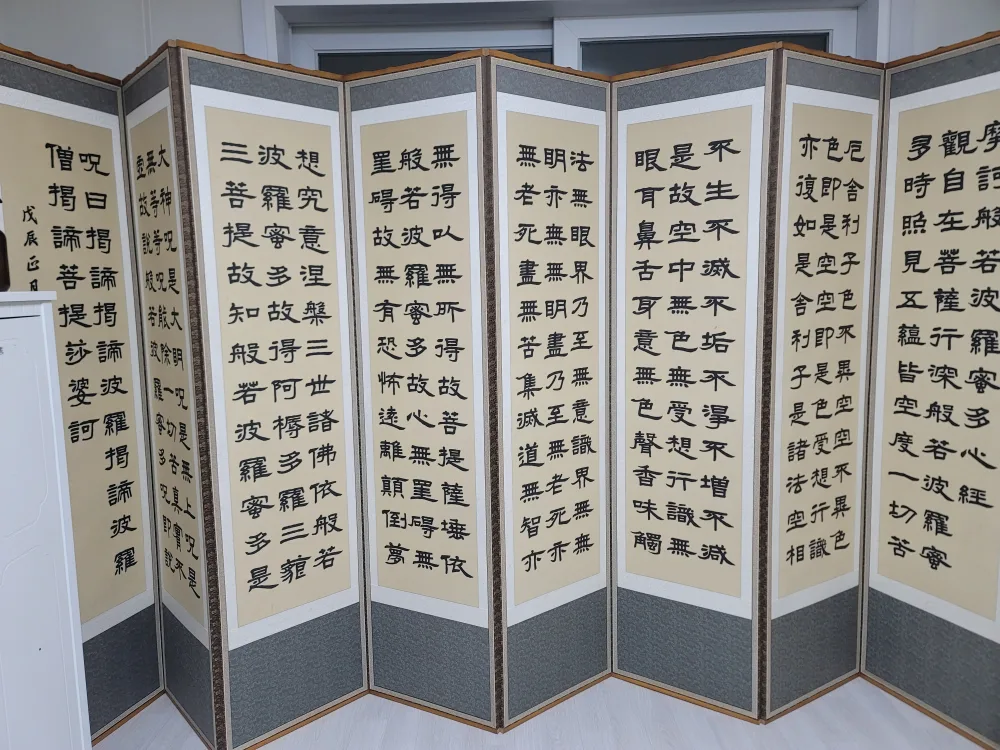 摩訶般若波羅蜜多心經
觀自在菩薩行深般若波羅蜜
多時照見五蘊皆空度一切苦
厄舍利子色不異空空不異色
色即是空空即是色受想行識
亦復如是舍利子是諸法空相
不生不滅不垢不淨不增不減
是故空中無色無受想行識無
眼耳鼻舌身意無色聲香味觸
法無眼界乃至無意識界無無
明亦無無明盡乃至無老死亦
無老死盡無苦集滅道無智亦
無得以無所得故菩提薩埵依
般若波羅蜜多故心無罣礙無
罣礙故無有恐怖遠離顛倒夢
想究意涅槃三世諸佛依般若
波羅蜜多故得阿耨多羅三藐
三菩提故知般若波羅蜜多是
大神呪是大明呪是無上呪是
無等等呪能除一切苦真實不
虛故說般若波羅蜜多呪即說
呪曰揭諦揭諦波羅揭諦波羅
僧揭諦菩提莎婆訶
戊辰正月